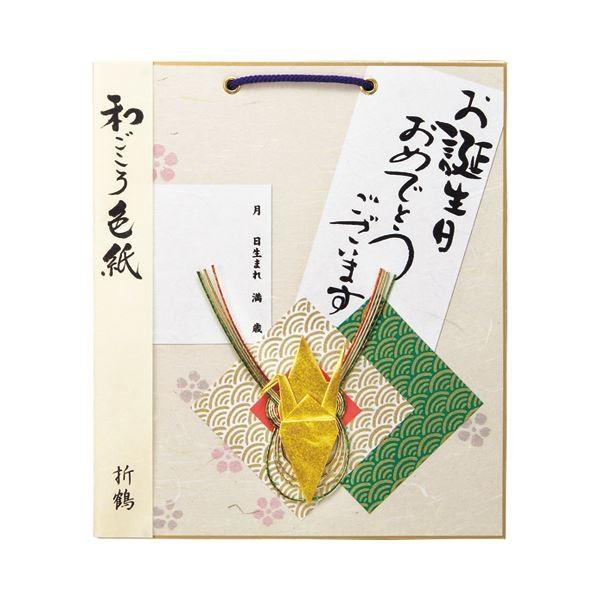 和ごころ色紙
折鶴
お誕生日
おめでとう
ございます
月　日生まれ　満　歳